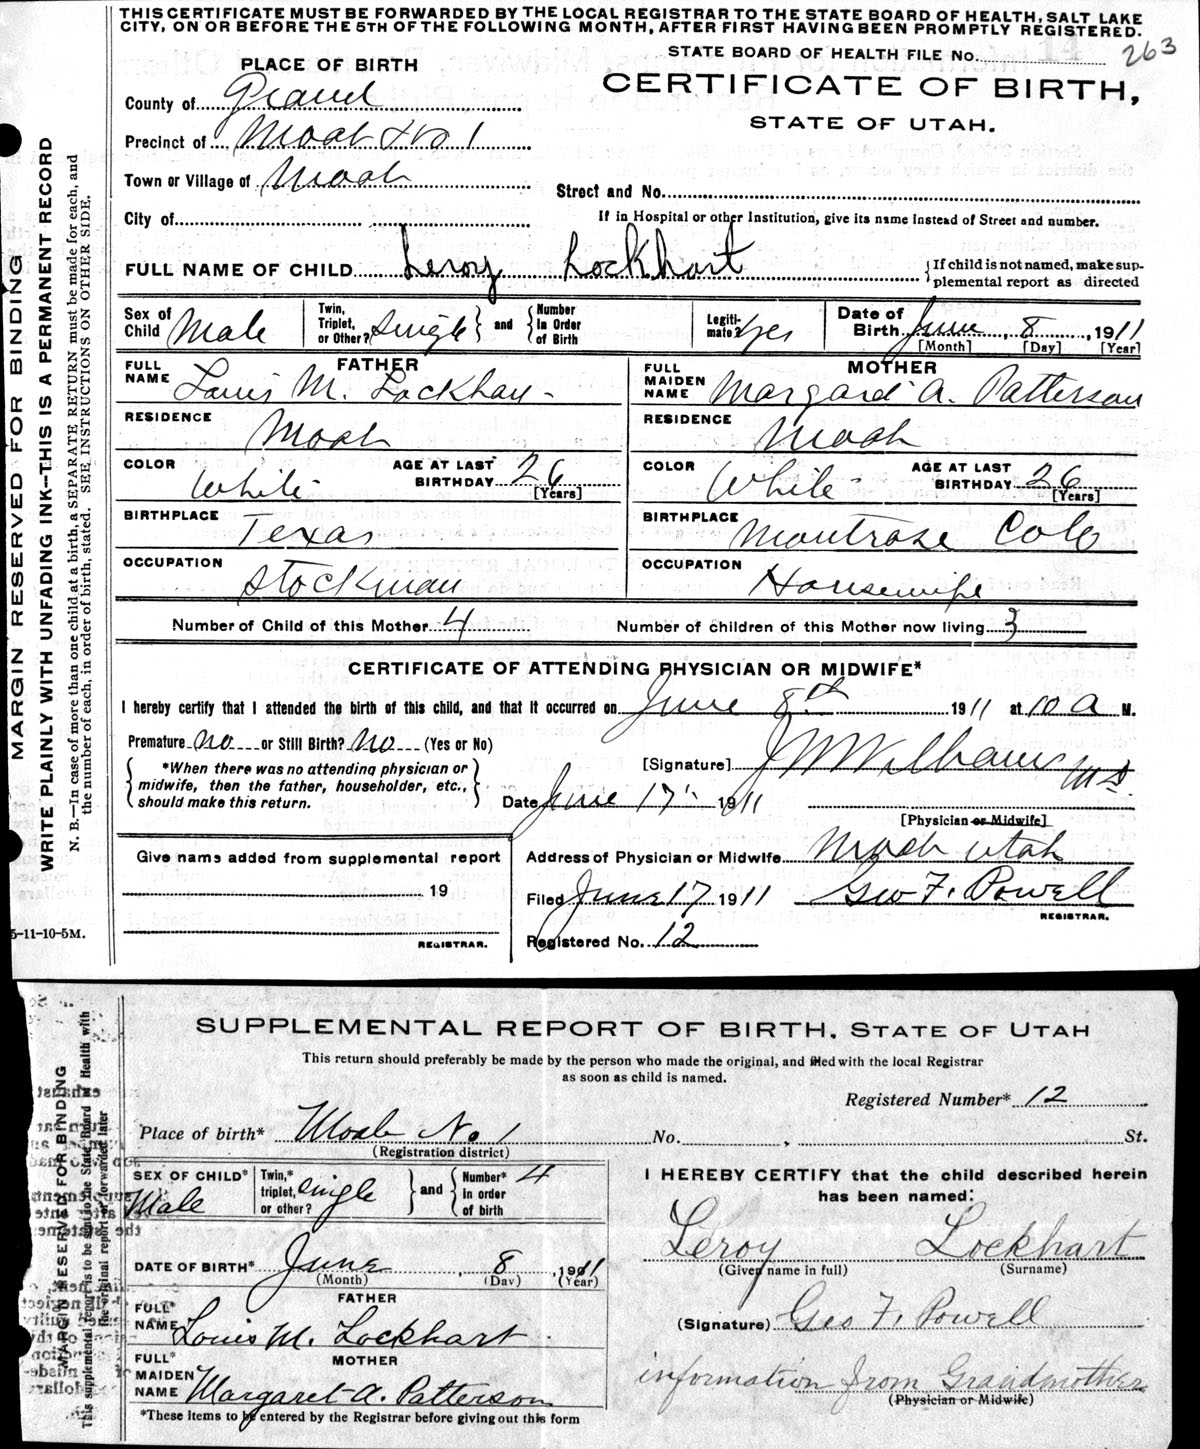 THIS CERTIFICATE MUST BE FORWARDED BY THE LOCAL REGISTRAR TO THE STATE BOARD OF HEALTH, SALT LAKE
CITY, ON OR BEFORE THE 5TH OF THE FOLLOWING MONTH, AFTER FIRST HAVING BEEN PROMPTLY REGISTERED.
STATE BOARD OF HEALTH FILE No. 263
PLACE OF BIRTH
CERTIFICATE OF BIRTH,
STATE OF UTAH.
County of Grand
Precinct of Moab No 1
Town or Village of Moab
Street and No.
City of
If in Hospital or other Institution, give its name instead of Street and number.
FULL NAME OF CHILD Leroy Lockhart
If child is not named, make sup-
plemental report as directed
Sex of Child Male
Twin, Triplet, or Other? Single and Number In Order of Birth
Legiti-mate? yes
Date of Birth June 8, 1911
[Month] [Day] [Year]
FATHER
FULL NAME Louis M. Lockhart
MOTHER
FULL MAIDEN NAME Margaret A. Patterson
RESIDENCE Moab
RESIDENCE Moab
COLOR White AGE AT LAST BIRTHDAY 26 [Years]
COLOR White AGE AT LAST BIRTHDAY 26 [Years]
BIRTHPLACE Texas
BIRTHPLACE Montrose Colo
OCCUPATION Stockman
OCCUPATION Housewife
Number of Child of this Mother 4
Number of children of this Mother now living 3
CERTIFICATE OF ATTENDING PHYSICIAN OR MIDWIFE*
I hereby certify that I attended the birth of this child, and that it occurred on June 8th 1911 at 10 a M.
Premature no or Still Birth? no (Yes or No)
[Signature] J W Williams MD.
*When there was no attending physician or
midwife, then the father, householder, etc.,
should make this return.
Date June 17" 1911
[Physician or Midwife]
Give name added from supplemental report
19
REGISTRAR.
Address of Physician or Midwife Moab Utah
Filed June 17 1911 Geo F. Powell
REGISTRAR.
Registered No. 12
5-11-10-5M.
MARGIN RESERVED FOR BINDING
WRITE PLAINLY WITH UNFADING INK—THIS IS A PERMANENT RECORD
N. B.—In case of more than one child at a birth, a SEPARATE RETURN must be made for each, and
the number of each, in order of birth, stated. SEE INSTRUCTIONS ON OTHER SIDE.
SUPPLEMENTAL REPORT OF BIRTH, STATE OF UTAH
This return should preferably be made by the person who made the original, and filed with the local Registrar
as soon as child is named.
Registered Number* 12
Place of birth* Moab No 1 No. , St.
(Registration district)
SEX OF CHILD* Male
Twin,* triplet, or other? Single and Number* in order of birth 4
I HEREBY CERTIFY that the child described herein
has been named:
Leroy Lockhart
(Given name in full) (Surname)
DATE OF BIRTH* June 8, 1911
(Month) (Day) (Year)
FATHER
FULL* NAME Louis M. Lockhart
(Signature) Geo F. Powell
MOTHER
FULL* MAIDEN NAME Margaret A. Patterson
information from Grandmother
(Physician or Midwife)
*These items to be entered by the Registrar before giving out this form
MARGIN RESERVED FOR BINDING
This supplemental report is to be sent to the State Board of Health with
the original report or forwarded later